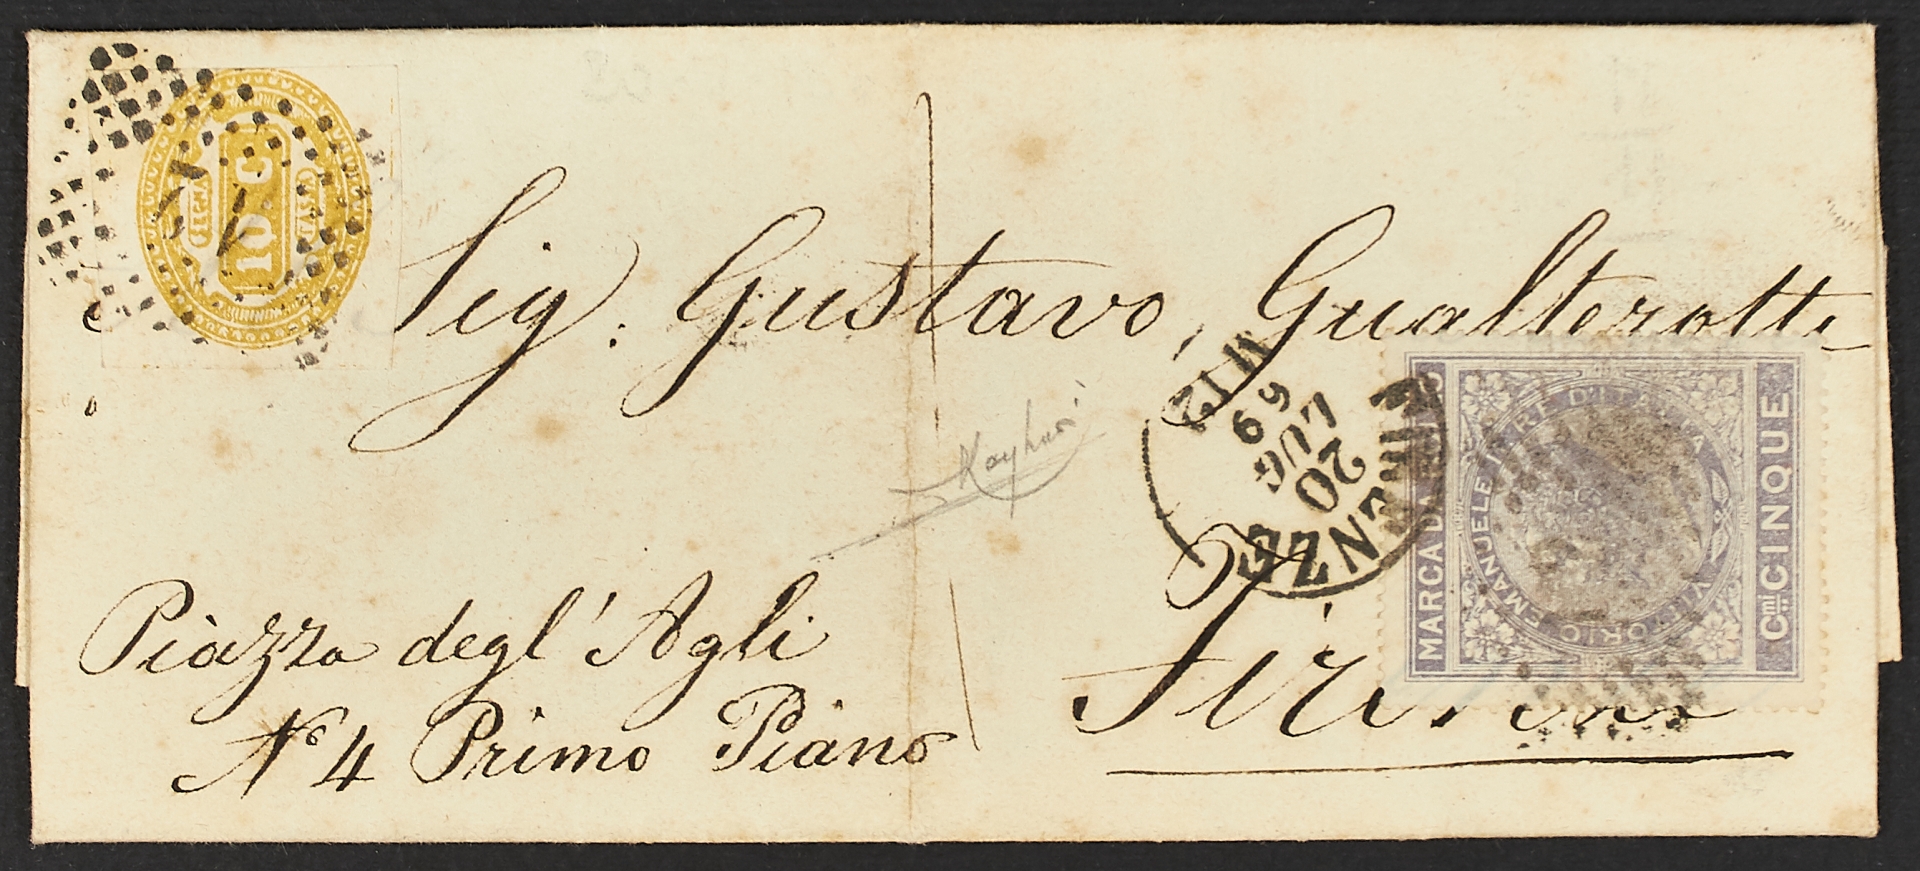 10 C
SEGNA TASSA
Sig. Gustavo Gualterotti
FIRENZE
20
LUG
69
12 M
MARCA DA
VITTORIO EMANUELE II RE D'ITALIA
Cmi CINQUE
Firenze
Piazza degl' Agli
No 4 Primo Piano